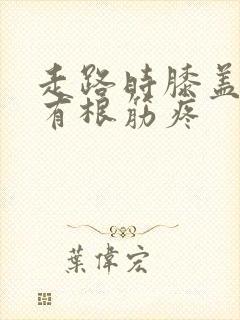 走路时膝盖
有根筋疼
葉偉宏